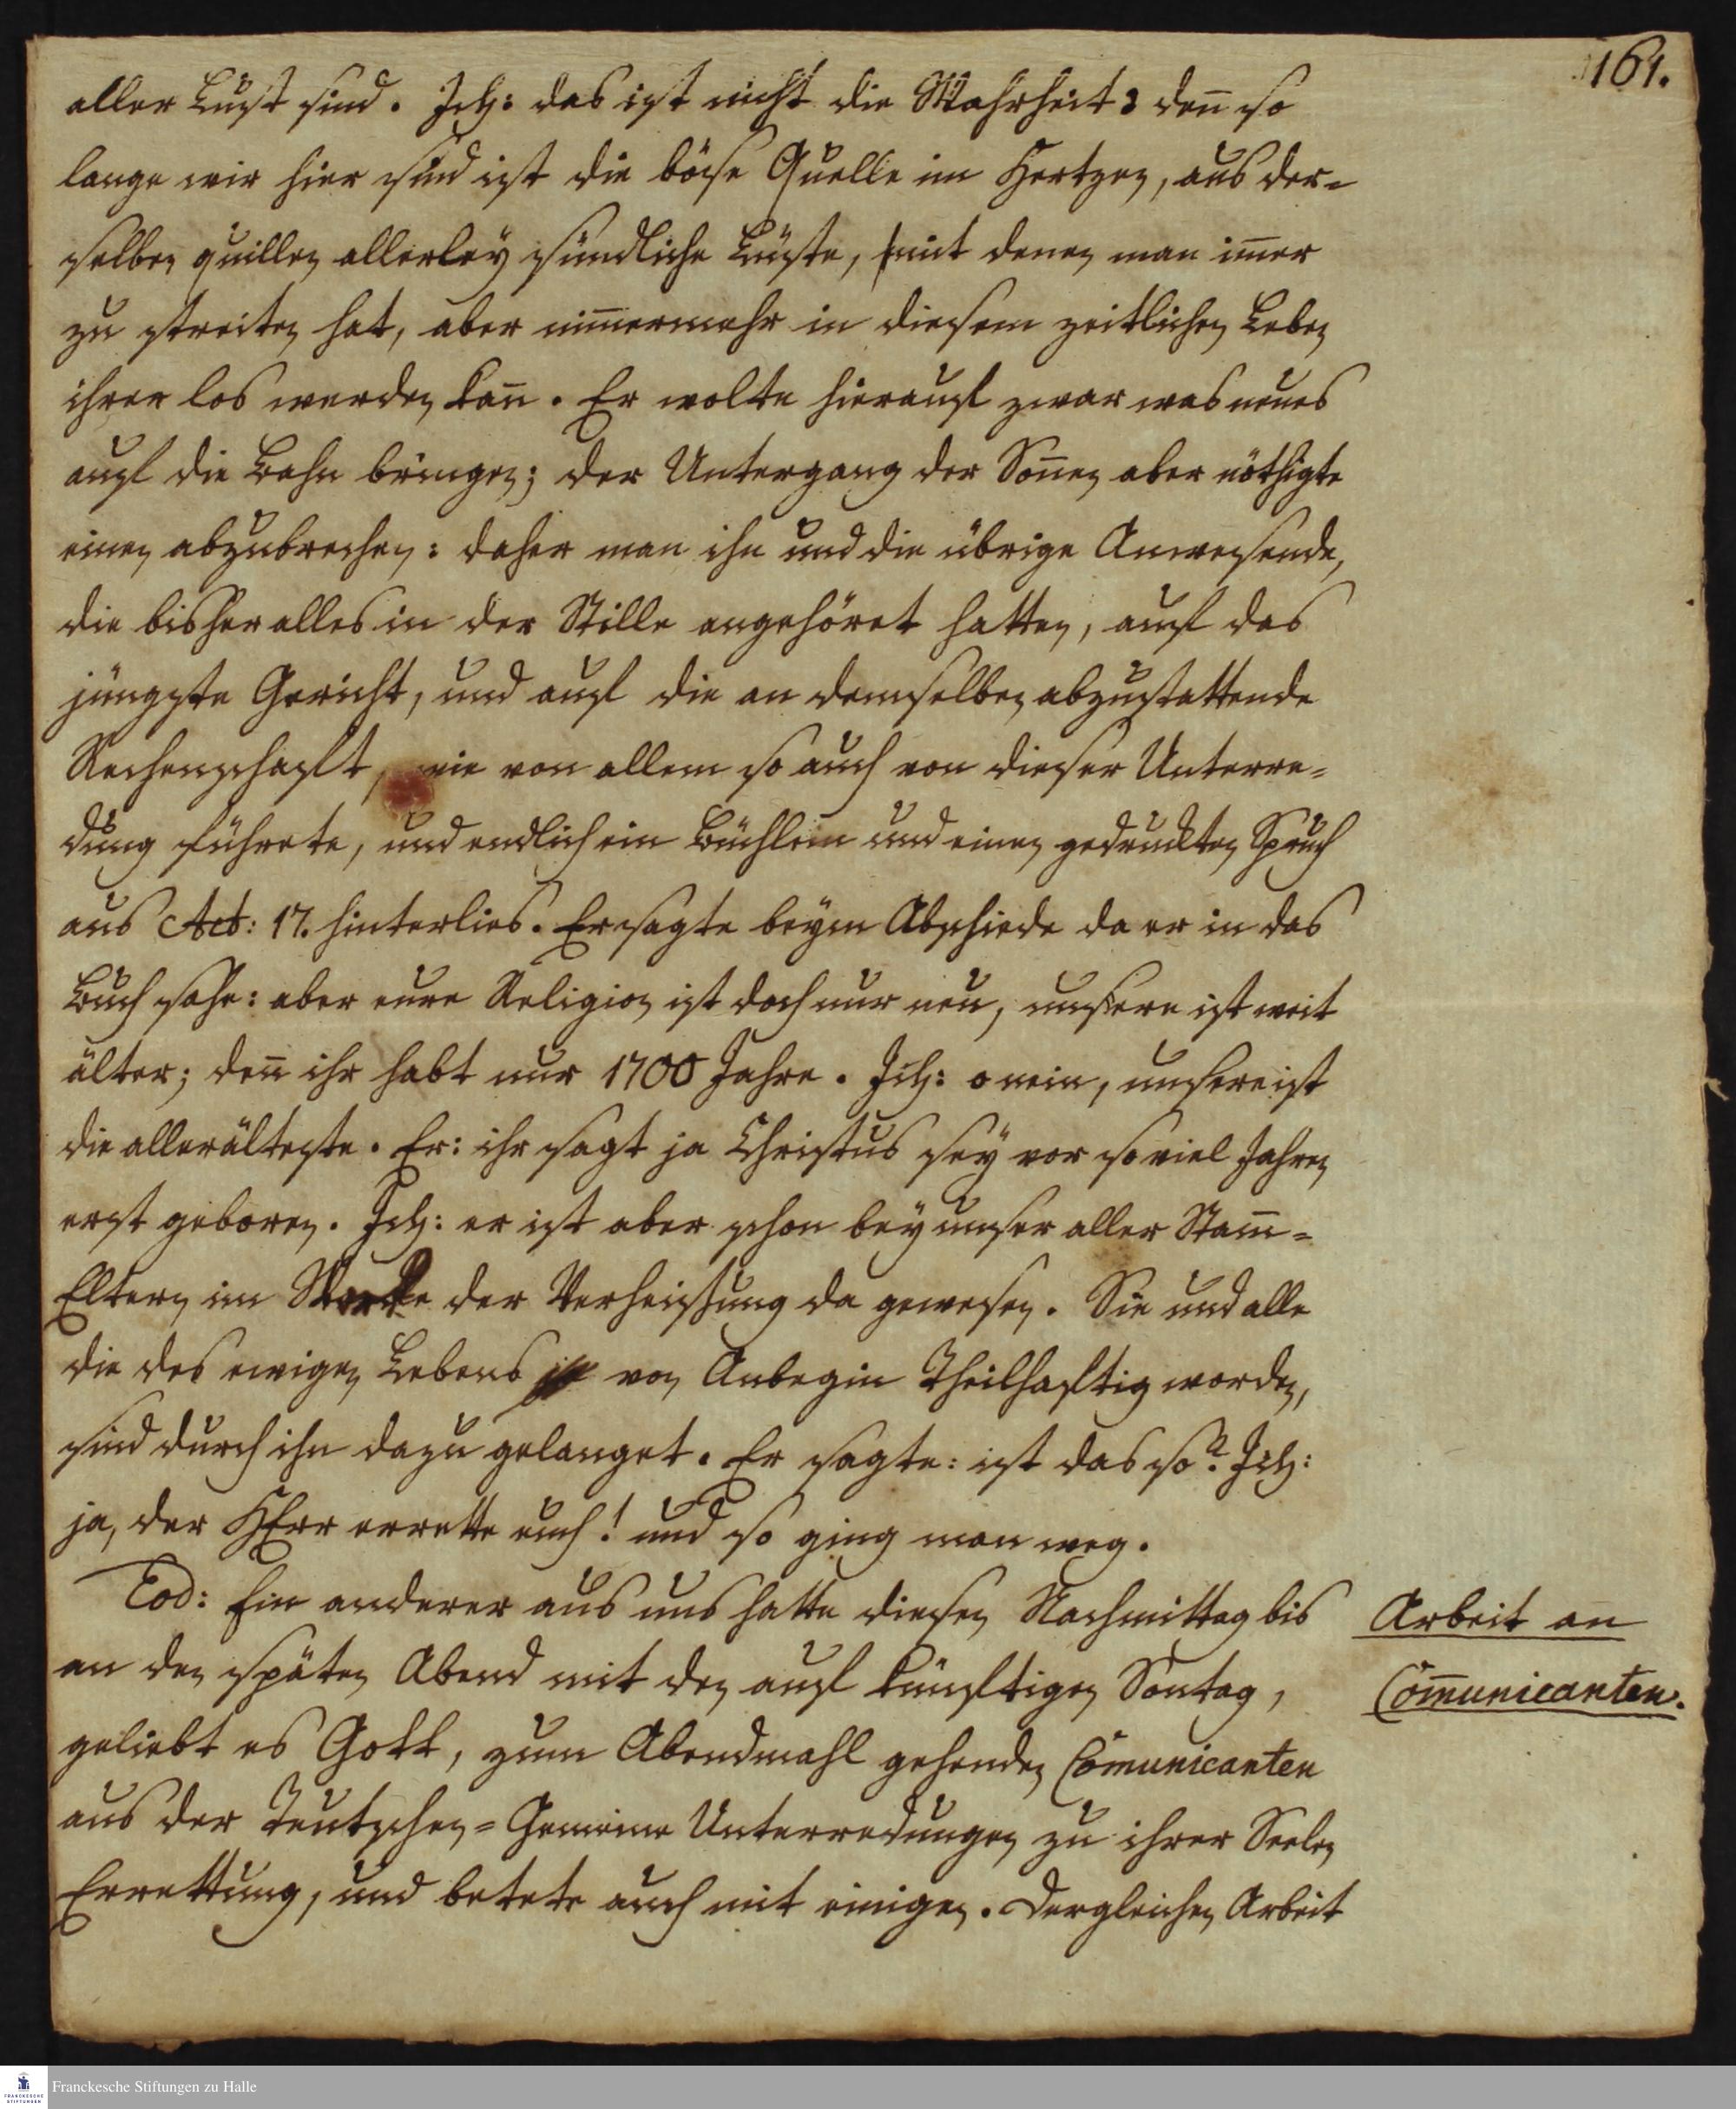 161.
aller Lust sind. Ich: das ist nicht die Wahrheit: den̄ so
lange wir hier sind ist die böse Quelle im Hertzen, aus der-
selben quillen allerley sündliche Lüste, mit denen man im̄er
zu streiten hat, aber nim̄ermehr in diesem zeitlichen Leben
ihrer los werden kan̄. Er wolte hierauf zwar was neues
auf die Bahn bringen; der Untergang der Son̄en aber nöthigte
einen abzubrechen: daher man ihn und die übrige Anwesende,
die bisher alles in der Stille angehöret hatten, auf das
jüngste Gericht, und auf die an demselben abzustattende
Rechenschaft, wie von allem so auch von dieser Unterre-
dung führete, und endlich ein Büchlein und einen gedruckten Spruch
aus Act: 17. hinterlies. Er sagte beym Abschiede da er in das
Buch sahe: aber eure Religion ist doch nur neu, unsere ist weit
älter; den̄ ihr habt nur 1700 Jahre. Ich: o nein, unsere ist
die allerälteste. Er: ihr sagt ja Christus sey vor so viel Jahren
erst geboren. Ich: er ist aber schon bey unser aller Stam̄-
Eltern im Worte der Verheissung da gewesen. Sie und alle
die des ewigen Lebens von Anbegin Theilhaftig worden,
sind durch ihn dazu gelanget. Er sagte: ist das so? Ich:
ja, der HErr errette euch! und so ging man weg.
Eod: Ein anderer aus uns hatte diesen Nachmittag bis
an den späten Abend mit den auf künftigen Son̄tag,
geliebt es Gott, zum Abendmahl gehenden Com̄unicanten
aus der Teutschen-Gemeine Unterredungen zu ihrer Seelen
Errettung, und betete auch mit einigen. Dergleichen Arbeit
Arbeit an
Com̄unicanten.
FRANCKESCHE
STIFTUNGEN
Franckesche Stiftungen zu Halle